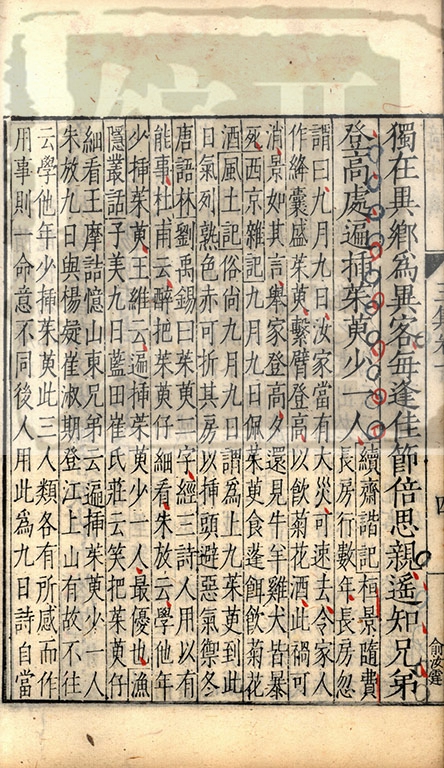 獨在異鄉為異客每逢佳節倍思親遙知兄弟
登高處遍插茱萸少一人
續齋諧記桓景隨費
長房行數年長房忽
謂曰九月九日汝家當有大災可速去令家人
作絳囊盛茱萸繫臂登高以飲菊花酒此禍可
消景如其言舉家登高夕還見牛羊雞犬苦暴
死西京雜記九月九日佩茱萸食蓬餌飲菊花
酒風土記俗尚九月九日謂為上九茱萸到此
日氣烈熟色赤可折其房以插頭避惡氣禦冬
唐語林劉禹錫曰茱萸二字經三詩人用以有
能事杜甫云醉把茱萸仔細看朱放云學他年
少插茱萸王維云遍插茱萸少一人最優也漁
隱叢話子美九日藍田崔氏莊云笑把茱萸仔
細看王摩詰憶山東兄弟云遍插茱萸少一人
朱放九日與楊凝崔淑期登江上山有故不往
云學他年少插茱萸此三人類各有所感而作
用事則一命意不同後人用此為九日詩自當